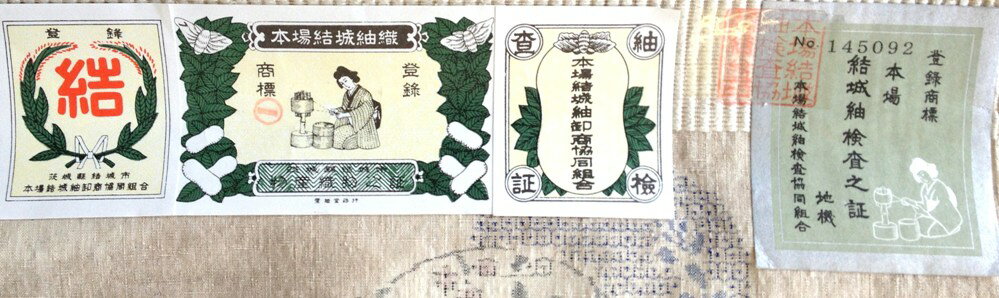 登録
結
茨城縣結城市
本場結城紬卸商協同組合
本場結城紬織
登録
商標
査
紬
検
証
本場結城紬卸商協同組合
No. 145092
登録商標
本場
結城紬検査之証
地機
本場結城紬検査協同組合